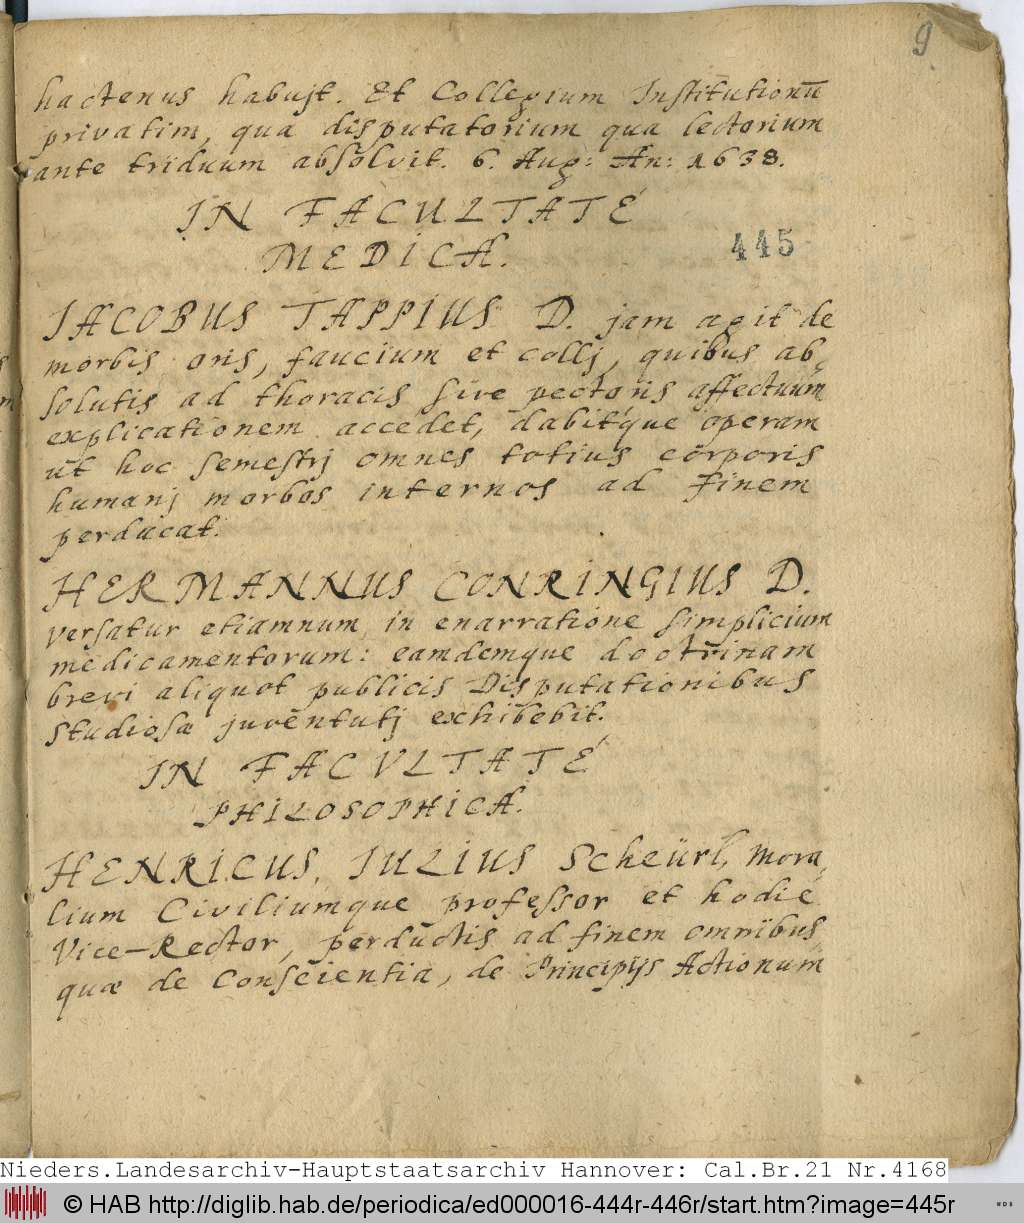 9
hactenus habujt. Et Collegium Institutionū
privatim, qua disputatorium qua lectorium
ante triduum absolvit. 6. Aug: An: 1638.
IN FACULTATE
MEDICA.
445
IACOBUS TAPPIUS D. jam agit de
morbis oris, faucium et collj, quibus ab,
solutis ad thoracis sive pectoris affectuum
explicationem accedet, dabitque operam
ut hoc semestrj omnes totius corporis
humanj morbos internos ad finem
perducat.
HERMANNUS CONRINGIUS D.
versatur etiamnum in enarratione simplicium
medicamentorum: eamdemque doctrinam
brevi aliquot publicis Disputationibus
studiosæ juventutj exhibebit.
IN FACVLTATE
PHILOSOPHICA.
HENRICUS, IULIUS Scheürl, Mora,
lium Civiliumque professor et hodie
Vice-Rector, perductis ad finem omnibus
quæ de Conscientia, de Principijs Actionum
Nieders.Landesarchiv-Hauptstaatsarchiv Hannover: Cal.Br.21 Nr.4168
© HAB http://diglib.hab.de/periodica/ed000016-444r-446r/start.htm?image=445r